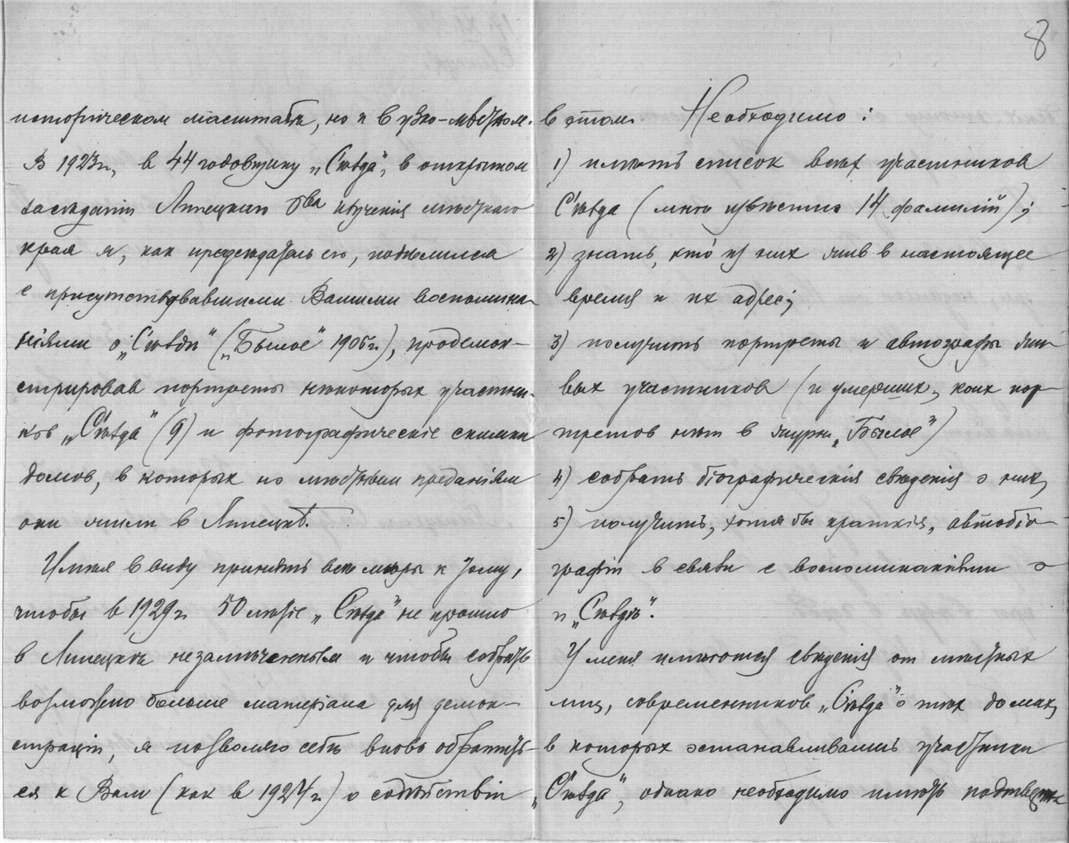 8
историческом масштабѣ, но и в узко-мѣстном.
В 1923 г., в 44 годовщину „Съѣзда“, в открытом
заседании Липецкаго О-ва изученія мѣстнаго
края я, как председатель его, поделился
с присутствовавшими Вашими воспомина-
ніями о „Съѣзде“ („Былое“ 1906 г.), продемон-
стрировав портреты некоторых участни-
ков „Съѣзда“ (9) и фотографическіе снимки
домов, в которых по мѣстным преданіям
они жили в Липецкѣ.
Имея в виду принять все меры к тому,
чтобы в 1929 г. 50 летіе „Съѣзда“ не прошло
в Липецкѣ незамѣченным и чтобы собрать
возможно больше матеріала для демон-
страціи, я позволяю себѣ вновь обратить-
ся к Вам (как в 1924 г.) о содѣйствіи
в этом. Необходимо:
1) имѣть список всѣх участников
Съѣзда (мне извѣстно 14 фамилій);
2) знать, кто из них жив в настоящее
время и их адрес;
3) получить портреты и автографы жи-
вых участников (и умерших, коих пор-
третов нѣт в журн. „Былое“)
4) собрать біографическія сведенія о них,
5) получить, хотя бы краткія, автобіо-
графіи в связи с воспоминаніями о
„Съѣзде“.
У меня имеются сведенія от мѣстных
лиц, современников „Съѣзда“ о тех домах,
в которых останавливались участники
„Съѣзда“, однако необходимо имѣть